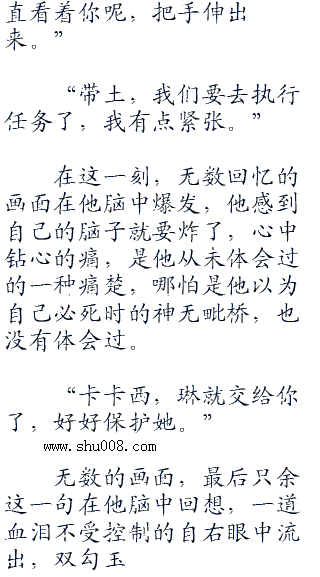 直看着你呢，把手伸出
来。”
“带土，我们要去执行
任务了，我有点紧张。”
在这一刻，无数回忆的
画面在他脑中爆发，他感到
自己的脑子就要炸了，心中
钻心的痛，是他从未体会过
的一种痛楚，哪怕是他以为
自己必死时的神无毗桥，也
没有体会过。
“卡卡西，琳就交给你
了，好好保护她。”
www.shu008.com
无数的画面，最后只余
这一句在他脑中回想，一道
血泪不受控制的自右眼中流
出，双勾玉